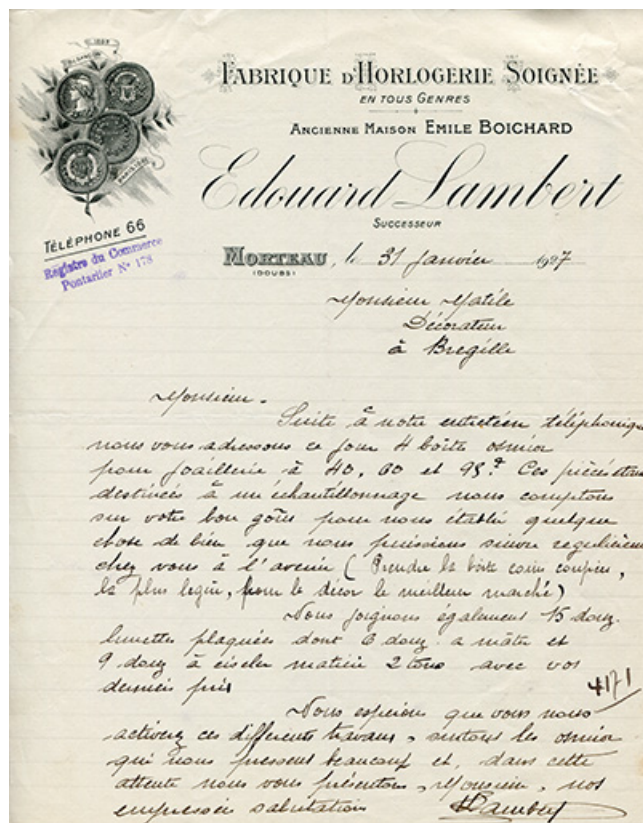 FABRIQUE D'HORLOGERIE SOIGNÉE
EN TOUS GENRES
ANCIENNE MAISON EMILE BOICHARD
Edouard Lambert
SUCCESSEUR
TÉLÉPHONE 66
Registre du Commerce
Pontarlier N° 178
MORTEAU, le 31 Janvier 1927
(DOUBS)
Monsieur Matile
Décorateur
à Bregille
Monsieur.
Suite à notre entretien téléphonique
nous vous adressons ce jour 4 boîte osmior
pour joaillerie à 40, 60 et 95.f Ces pièces étant
destinées à un échantillonnage nous comptons
sur votre bon goût pour nous établir quelque
chose de bien que nous puissions suivre
chez vous à l'avenir (Prendre la boîte coins coupées,
la plus , pour le décor le meilleur marché)
Nous joignons également 15 douz.
lunettes plaquées dont 6 douz. a mâtir et
9 douz à ciseler 2 tons avec vos
derniers prix
4171
Nous espérons que vous nous
activerez ces différents travaux, surtout les osmior
qui nous pressent beaucoup et, dans cette
attente nous vous présentons, Monsieur, nos
empressées salutations
ELambert